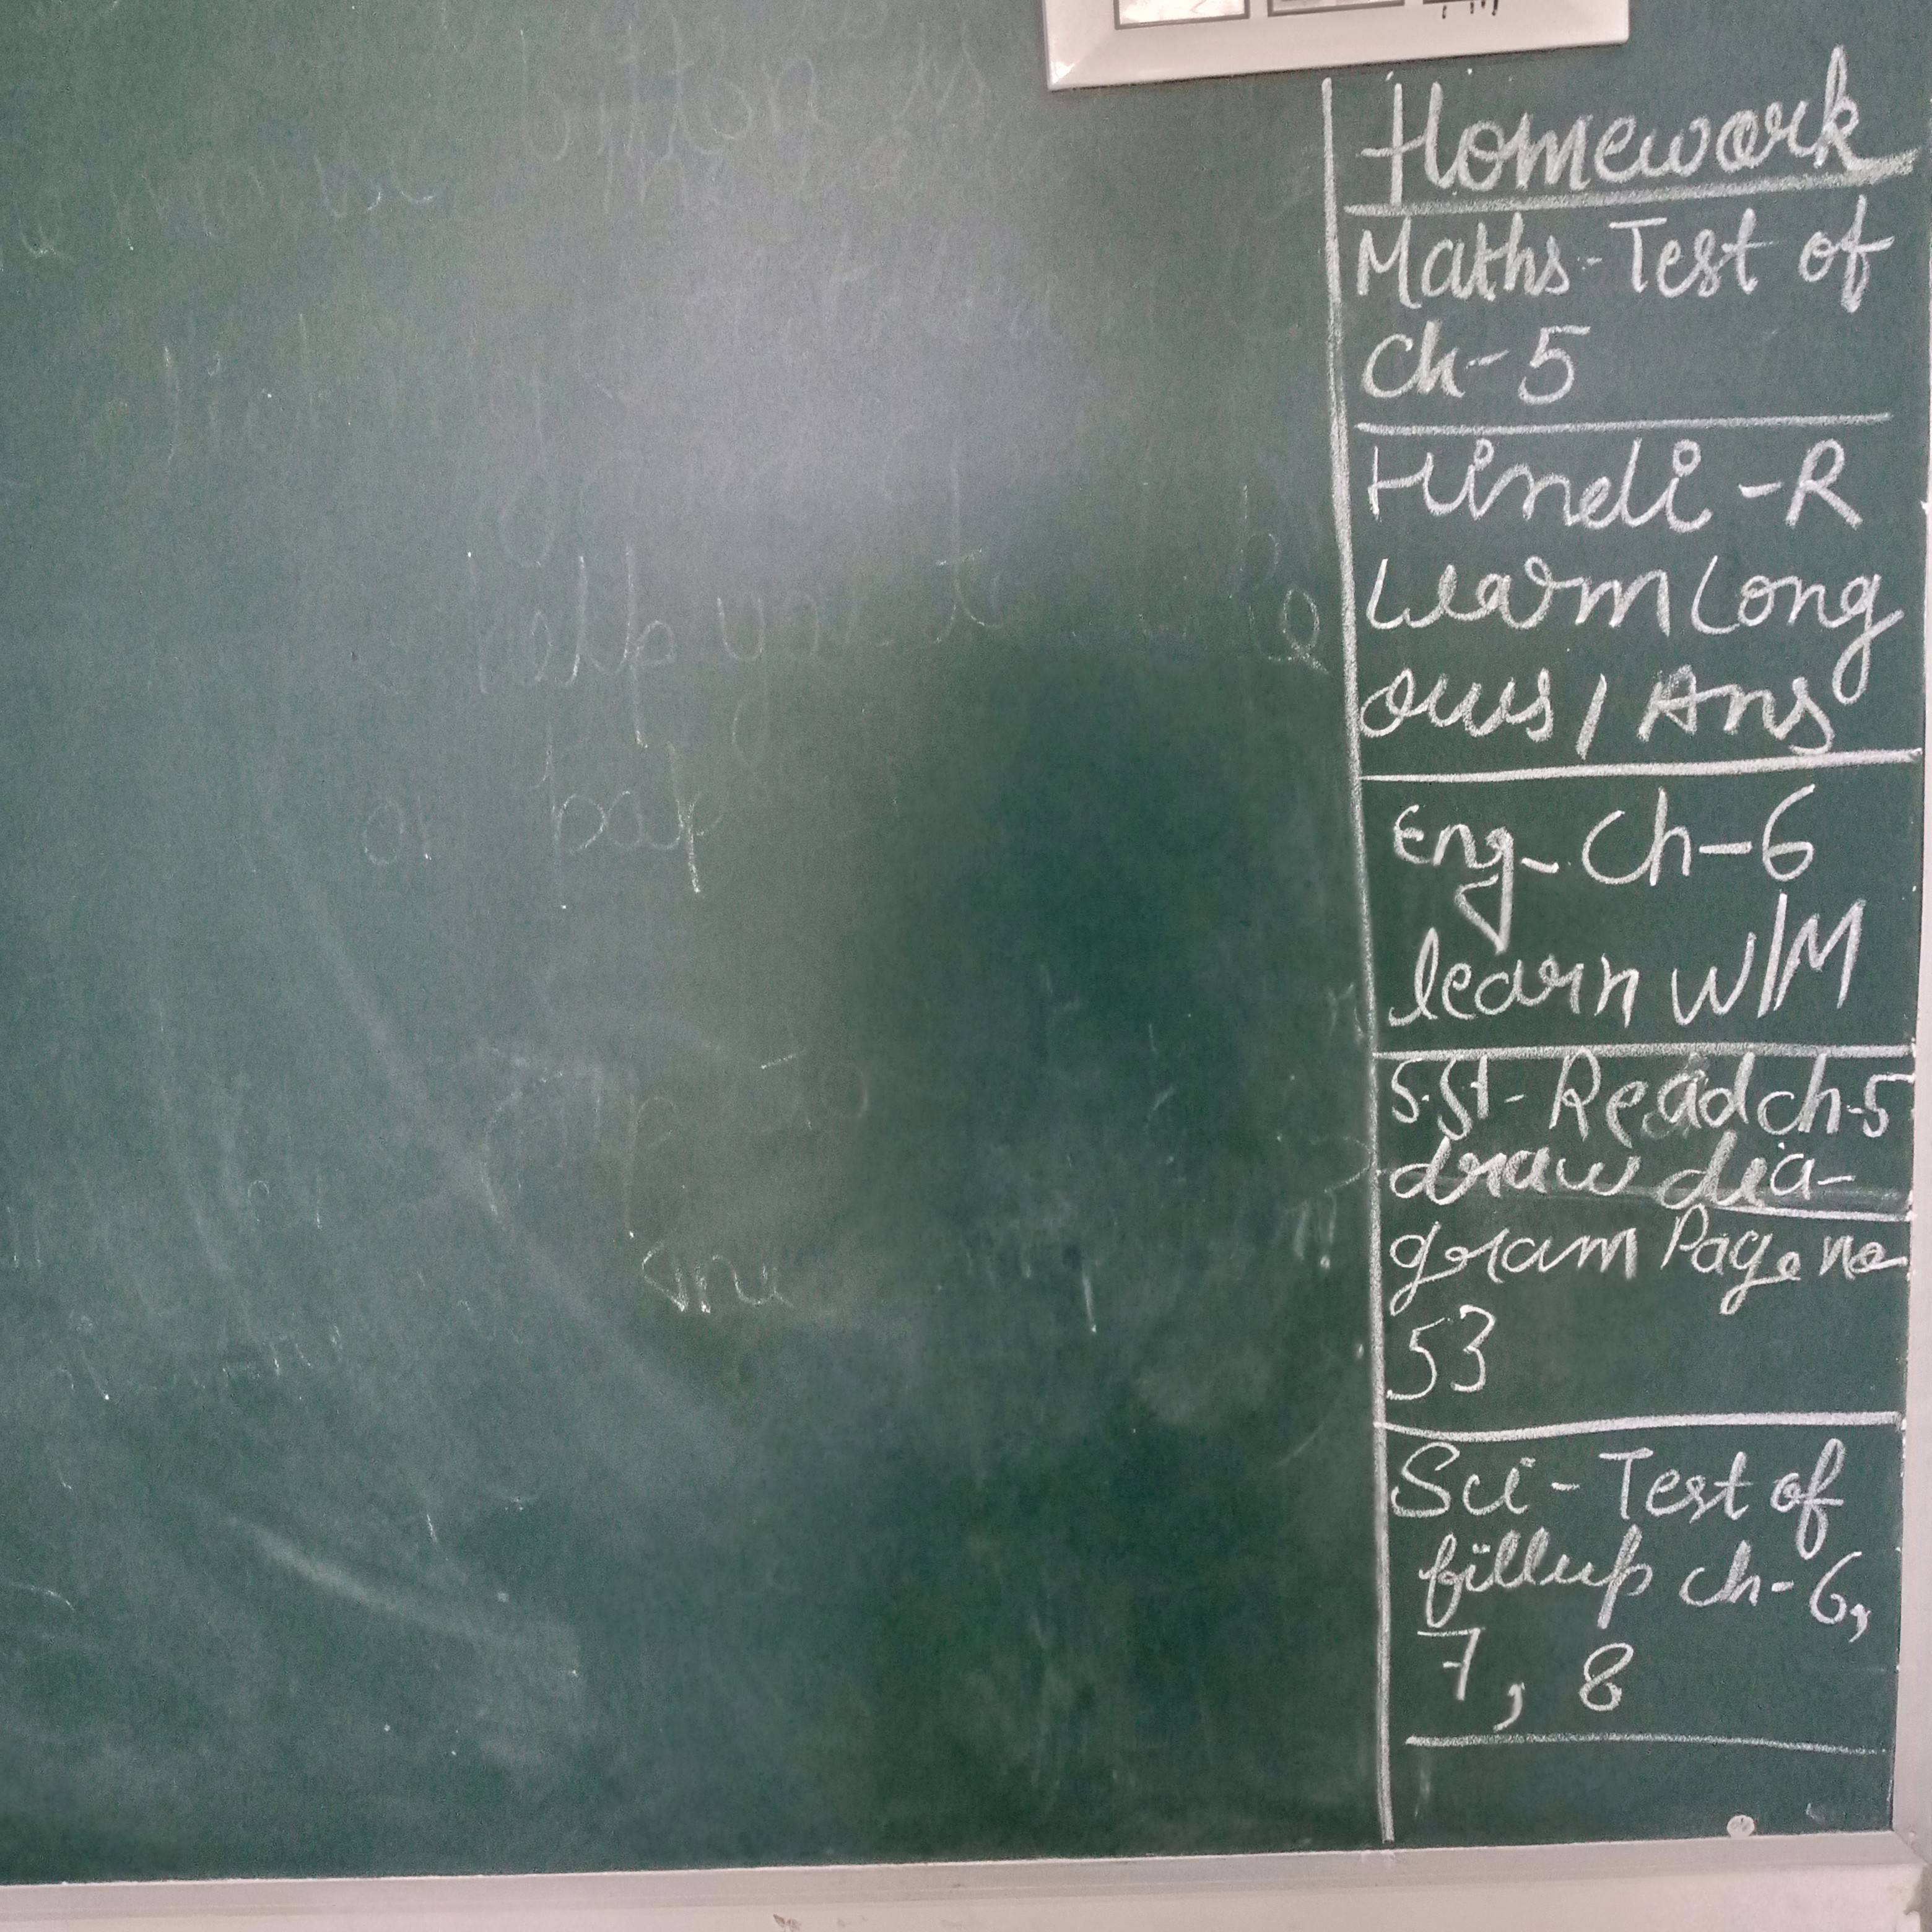 button is
help you to
or pap
Homework
Maths-Test of
Ch-5
Hindi-R
Learn Long
Ques/Ans
Eng-Ch-6
learn W/M
S.St-Read ch-5
draw dia-
gram Page no
53
Sci-Test of
fillup ch-6,
7, 8